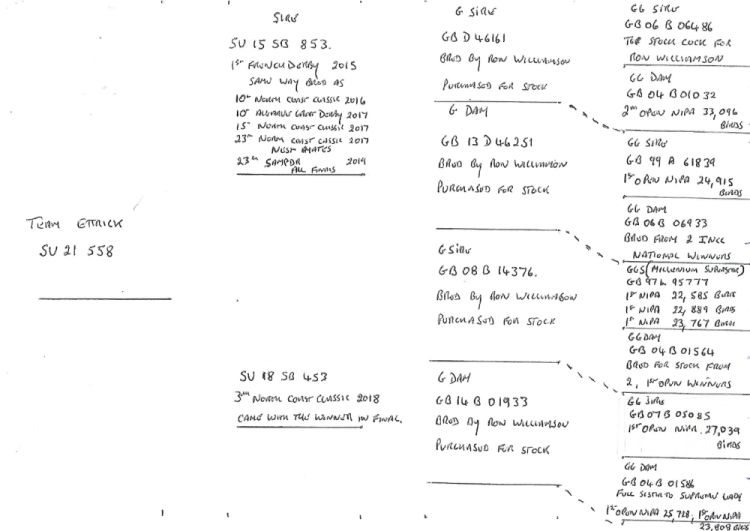 TEAM ETTRICK
SU 21 558
SIRE
SU 15 SB 853.
1st FRENCH DERBY 2015
SAME WAY BRED AS
10th NORTH COAST CLASSIC 2016
10th ALGARVE GREAT DERBY 2017
15th NORTH COAST CLASSIC 2017
23rd NORTH COAST CLASSIC 2017
NEST MATES
23rd SAMPDR 2019
ALL FINALS
SU 18 SB 453
3rd NORTH COAST CLASSIC 2018
CAME WITH THE WINNER IN FINAL.
G SIRE
GB D 46161
BRED BY RON WILLIAMSON
PURCHASED FOR STOCK
G DAM
GB 13 D 46251
BRED BY RON WILLIAMSON
PURCHASED FOR STOCK
G SIRE
GB 08 B 14376.
BRED BY RON WILLIAMSON
PURCHASED FOR STOCK
G DAM
GB 14 B 01933
BRED BY RON WILLIAMSON
PURCHASED FOR STOCK
GG SIRE
GB 06 B 06486
THE STOCK COCK FOR
RON WILLIAMSON
GG DAM
GB 04 B 01032
2nd OPEN NIPA 33,096
BIRDS
GG SIRE
GB 99 A 61839
1st OPEN NIPA 24,915
BIRDS
GG DAM
GB 06 B 06933
BRED FROM 2 INCL
NATIONAL WINNERS
GGS (MILLENIUM SUPERSTAR)
GB 97 L 95777
1st NIPA 22,585 BIRDS
1st NIPA 22,889 BIRDS
1st NIPA 23,767 BIRDS
GG DAM
GB 04 B 01564
BRED FOR STOCK FROM
2, 1st OPEN WINNERS
GG SIRE
GB 07 B 05085
1st OPEN NIPA. 27,039
BIRDS
GG DAM
GB 04 B 01586
FULL SISTER TO SUPREME LADY
1st OPEN NIPA 25,728, 1st OPEN NIPA
23,809 BIRDS